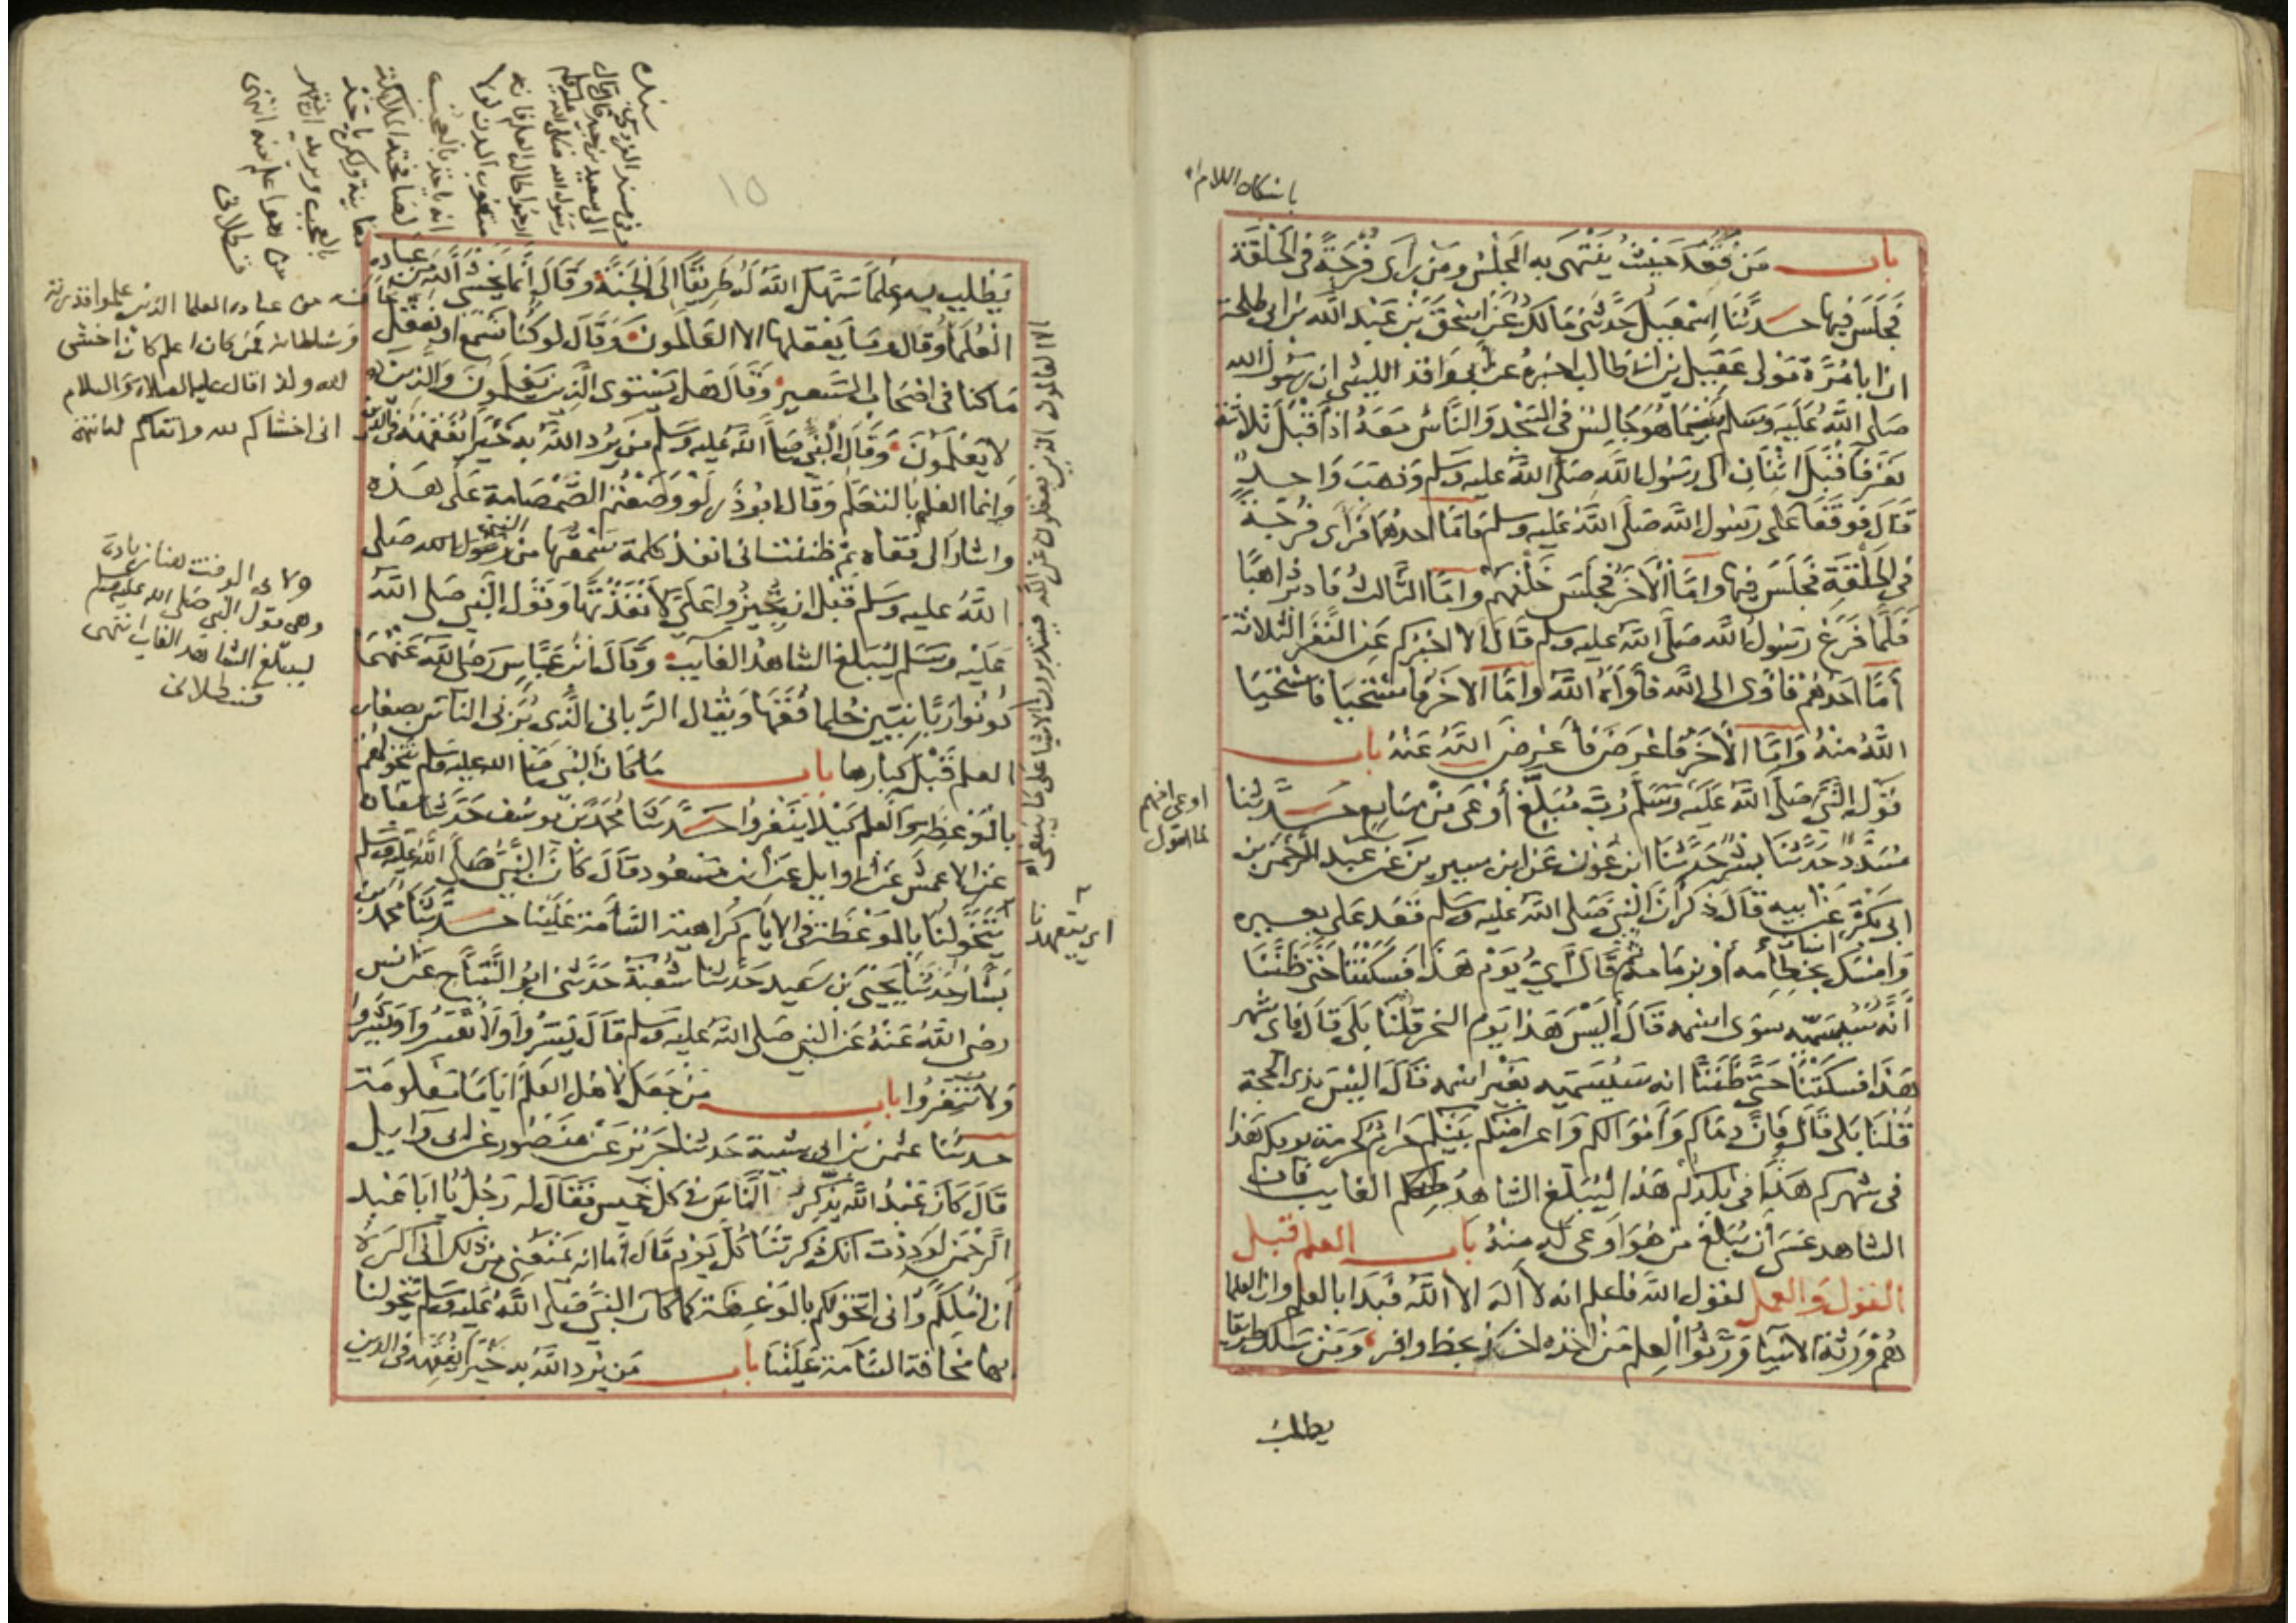 باسكان اللام اه
باب من قعد حيث ينتهى به المجلس ومن راى فرجة فى الحلقة
فجلس فيها حدثنا اسمعيل حدثنى مالك عن اسحق بن عبد الله بن ابى طلحة
ان ابا مرة مولى عقيل بن ابى طالب اخبره عن ابى واقد الليثى ان رسول الله
صلى الله عليه وسلم بينما هو جالس فى المسجد والناس معه اذ اقبل ثلاثة
نفر فاقبل اثنان الى رسول الله صلى الله عليه وسلم وذهب واحد
قال فوقفا على رسول الله صلى الله عليه وسلم فاما احدهما فراى فرجة
فى الحلقة فجلس فيها واما الآخر فجلس خلفهم واما الثالث فادبر ذاهبا
فلما فرغ رسول الله صلى الله عليه وسلم قال الا اخبركم عن النفر الثلاثة
أما احدهم فاوى الى الله فأواه الله واما الاخر فاستحيا فاستحيا
الله منه واما الآخر فاعرض فأعرض الله عنه باب
قول النبى صلى الله عليه وسلم رب مبلغ أوعى من سامع حدثنا
اوعى افهم
لما اقول
مسدد حدثنا بشر حدثنا ابن عون عن ابن سيرين عن عبد الرحمن بن
ابى بكرة عن ابيه قال ذكر ان النبى صلى الله عليه وسلم قعد على بعيره
وامسك انسان بخطامه أو بزمامه ثم قال أى يوم هذا فسكتنا حتى ظننا
أنه سيسميه سوى اسمه قال أليس هذا يوم النحر قلنا بلى قال فاى شهر
هذا فسكتنا حتى ظننا انه سيسميه بغير اسمه قال اليس بذى الحجة
قلنا بلى قال فان دماكم وأموالكم واعراضكم بينكم حرام كحرمة يومكم هذا
فى شهركم هذا فى بلدكم هذا ليبلغ الشاهد الغايب فان
الشاهد عسى أن يبلغ من هو أوعى له منه باب العلم قبل
القول والعمل لقول الله فاعلم انه لا اله الا الله فبدا بالعلم وان العلما
هم ورثة الانبيا ورثوا العلم من اخذه اخذ بحظ وافر ومن سلك طريقا
يطلب
١٥
سنده
وفى مسند الفردوس
الى سعيد بن جبير قال قال
رسول الله صلى الله عليه وسلم
بالعجب ويريد ان يقهر
من هو اعلم منه انتهى
قسطلانى
يطلب به علما سهل الله له طريقا الى الجنة وقال انما يخشى الله من عباده
العلما وقال وما يعقلها الا العالمون وقال لو كنا نسمع او نعقل
ما كنا فى اصحاب السعير وقال هل يستوى الذين يعلمون والذين
لا يعلمون وقال النبى صلى الله عليه وسلم من يرد الله به خيرا يفقهه فى الدين
وانما العلم بالتعلم وقال ابو ذر لو وضعتم الصمصامة على هذه
واشار الى قفاه ثم ظننت انى انفذ كلمة سمعتها من النبى رسول الله صلى
الله عليه وسلم قبل ان تجيزوا على لأنفذتها وقول النبى صلى الله
عليه وسلم ليبلغ الشاهد الغايب وقال ابن عباس رضى الله عنهما
كونوا ربانيين حلما فقها ويقال الربانى الذى يربى الناس بصغار
العلم قبل كبارها باب ما كان النبى صلى الله عليه وسلم يتخولهم
بالموعظة والعلم كيلا ينفروا حدثنا محمد بن يوسف حدثنا سفيان
عن الاعمش عن ابى وايل عن ابن مسعود قال كان النبى صلى الله عليه وسلم
يتخولنا بالموعظة فى الايام كراهية السأمة علينا حدثنا محمد بن
بشار حدثنا يحيى بن سعيد حدثنا شعبة حدثنى ابو التياح عن انس
رضى الله عنه عن النبى صلى الله عليه وسلم قال يسروا ولا تعسروا وبشروا
ولا تنفروا باب من جعل لاهل العلم اياما معلومة
حدثنا عثمن بن ابى شيبة حدثنا جرير عن منصور عن ابى وايل
قال كان عبد الله يذكر الناس فى كل خميس فقال له رجل يا ابا عبد
الرحمن لوددت انك ذكرتنا كل يوم قال أما انه يمنعنى من ذلك انى اكره
أن املكم وانى اتخولكم بالموعظة كما كان النبى صلى الله عليه وسلم يتخولنا
بها مخافة السامة علينا باب من يرد الله به خيرا يفقهه فى الدين
من عباده العلما الذين علموا قدرته
وسلطانه فمن كان اعلم كان اخشى
لله ولذا قال عليه الصلاة والسلام
انى اخشاكم لله واتقاكم له انتهى
ولابى الوقت هنا زيادة
وهى قول النبى صلى الله عليه وسلم
ليبلغ الشاهد الغايب انتهى
قسطلانى
الا العالمون الذين يعقلون عن الله فيتدبرون الاشيا على ما ينبغى اه
اى يتعهدنا